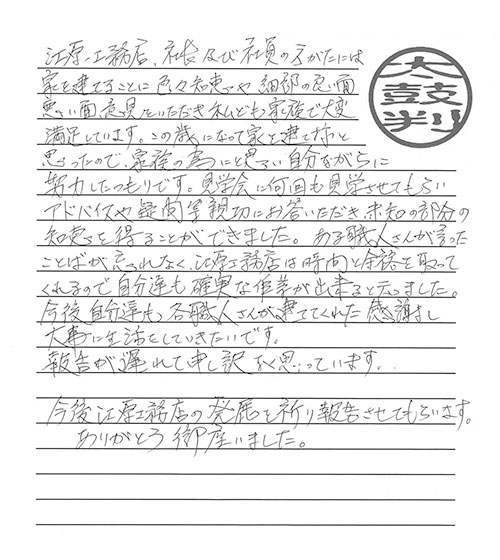 江原工務店、社長及び社員の方がたには
家を建てることに色々知恵や細部の良い面
悪い面意見をいただき私ども家族で大変
満足しています。この歳になって家を建て様と
思ったので、家族の為にと思い自分ながらに
努力したつもりです。見学会に何回も見学させてもらい
アドバイスや疑問等親切にお答いただき、未知の部分の
知恵を得ることができました。ある職人さんが言った
ことばが忘られなく、江原工務店は時間と余裕を取って
くれるので自分達も確実な作業が出来ると云いました。
今後自分達も各職人さんが建ててくれた感謝し
大事に生活をしていきたいです。
報告が遅れて申し訳なく思っています。
今後江原工務店の発展を祈り報告させてもらいます。
ありがとう御座いました。
太鼓判